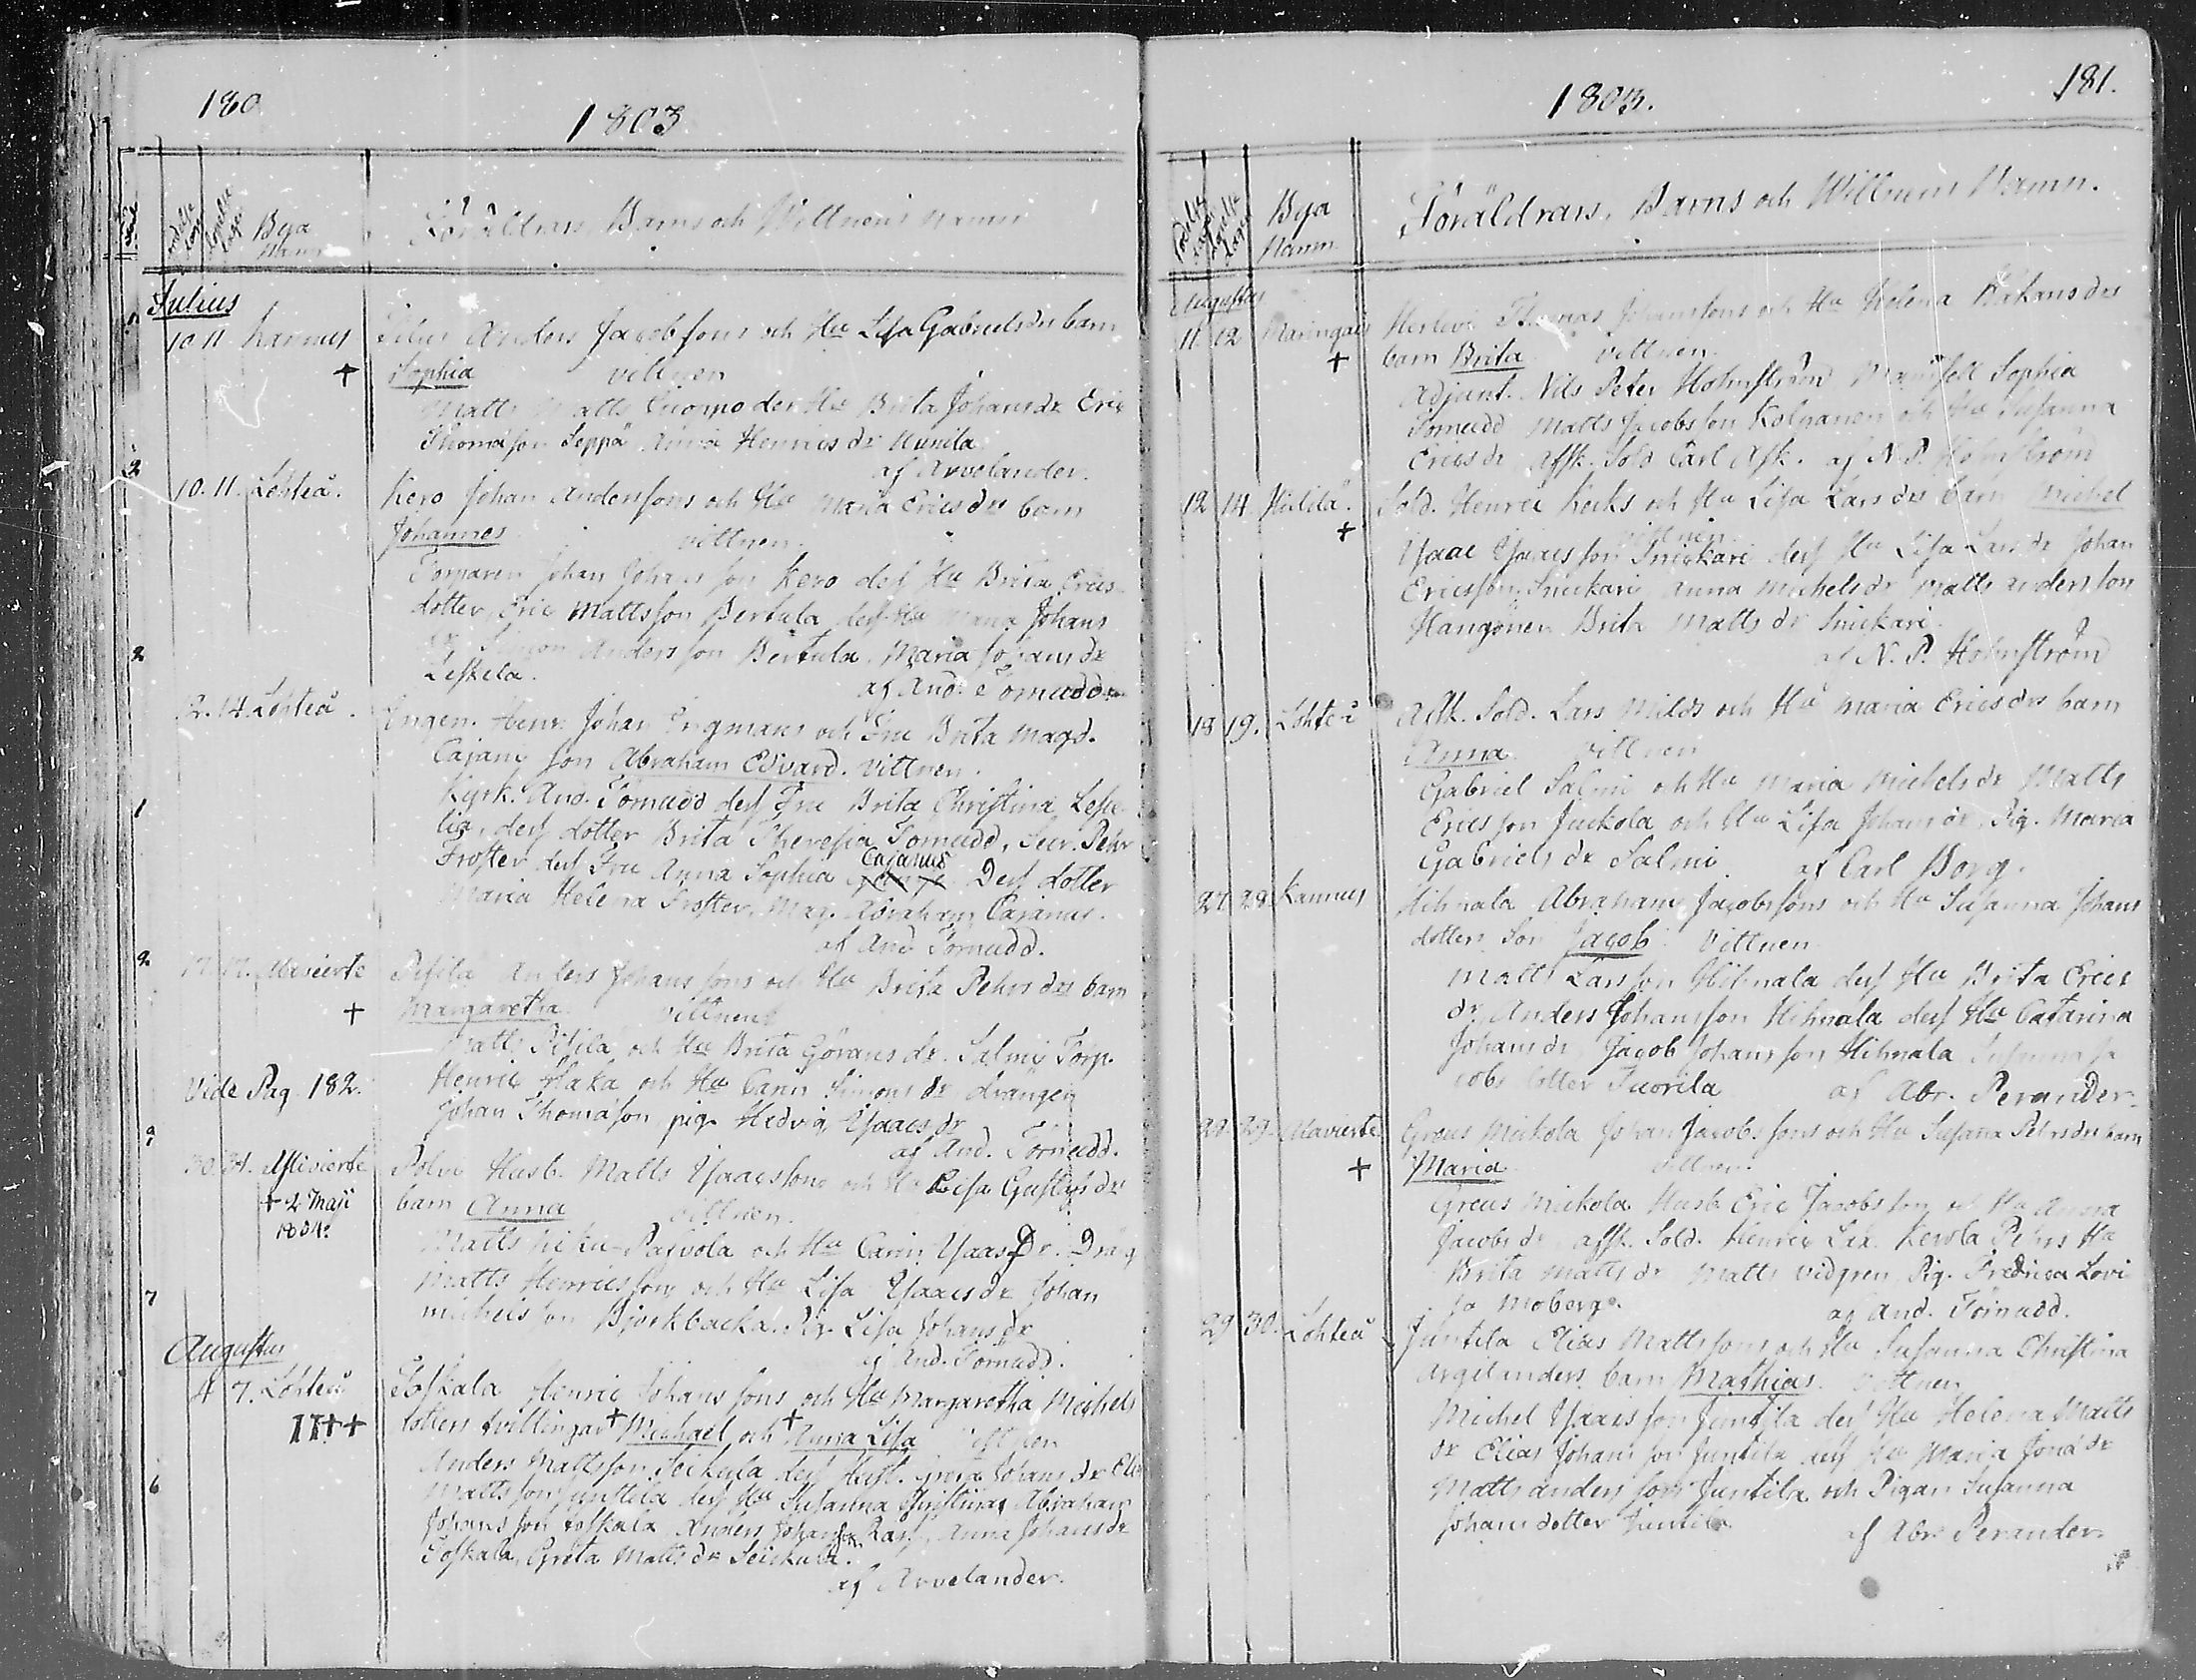 180.
1803.
Födelse dagar Döpelse dagar Bya Namn
Föräldrars, Barns och Wittnens namn
Julius
1 10 11 Kannus Filius Anders Jacobssons och Hu Lisa Gabrielsdrs barn
+ Sophia vittnen
Matts Matts Cuorpo der Hu Brita Johansdr Eric
Thomasson Seppä Anna Henricsdr Hunila
af Arvelander.
2 10. 11. Lohteå. Kero Johan Anderssons och Hu Maria Ericsdrs barn
Johannes vittnen.
Torparen Johan Johansson Kero dess Hu Brita Erics
dotter, Eric Mattsson Bertula dess Hu Maria Johans
dr Simon Andersson Bertula. Maria Johansdr
Leskela. af And. Tornudd
2 12. 14. Lohteå. Ingen. Henr. Johan Ingmans och Fru Brita Magd.
Cajani son Abraham Edvard. Vittnen.
Kyrk. And. Tornudd dess Fru Brita Christina Lesce
1 lia, dess dotter Brita Theresia Tornudd, Secr. Pehr
Froster dess Fru Anna Sophia Cajanus Dess dotter
Maria Helena Froster, Mag. Abraham Cajanus.
af And Tornudd.
2 17. 17. Alavierte Pisila Anders Johanssons och Hu Brita Pehrsdrs barn
+ Margaretha vittnen
Matts Pisila och Hu Brita Göransdr. Salmi Torp.
Vide Pag. 182. Henric Haka och Hu Carin Simonsdr drängen
Johan Thomasson, pig. Hedvig Ysaacsdr
af And. Tornudd.
2 30. 31. Ylivierte Polvi Husb. Matts Ysaacssons och Hu Lisa Gustafsdrs
+ 2 Maji barn Anna vittnen.
1834. Matts Niku-Pajuola och Hu Carin YsaacsDr. Dräg
Matts Henricsson och Hu Lisa Ysaacsdr Johan
7 Michelsson Björkbacka. Pig. Lisa Johansdr
af And. Tornudd.
Augustus
4 7. Lohteå Toskala Henric Johanssons och Hu Margaretha Michels
++ dotters tvillingar + Michael och + Anna Lisa vittnen
Anders Mattsson Seikula dess Hust. Greta Johansdr Elias
6 Mattsson Junttila dess Hu Susanna Christina, Abraham
Johansson Toskala Anders Johansson Rasf, Anna Johansdr
Toskala, Greta Mattsdr Seickula.
af Arvelander.
1803.
181.
Födelse dagar Döpelse dagar Bya Namn
Föräldrars, Barns och Wittnens Namn.
Augustus
11 12 Maringais Herlevi Thomas Johanssons och Hu Helena
+ barn Brita vittnen.
Adjunt. Nils Peter Holmström Mamsell Sophia
Tornudd Matts Jacobsson Kolpanen och Hu Susanna
Ericsdr Affk. Sold Carl Ask. af N. P. Holmström
12 14. Sold. Henric Kocks och Hu Lisa Larsdrs barn Michel
+ vittnen
Ysaac Ysaacsson Snickari dess Hu Lisa Larsdr Johan
Ericsson Snickari Anna Michelsdr Matts Andersson
Hangonen Brita Mattsdr Snickari.
af N. P. Holmström
18 19. Lohteå Affk. Sold. Lars Milds och Hu Maria Ericsdrs barn
Anna vittnen
Gabriel Salmi och Hu Maria Michelsdr Matts
Ericsson Juckola och Hu Lisa Johansdr, Pig. Maria
Gabrielsdr Salmi. af Carl Borg.
27 28. Kannus Hihnala Abraham Jacobssons och Hu Susanna Johans
dotters Son Jacob. Vittnen
Matts Larsson Hihnala dess Hu Brita Erics
dr. Anders Johansson Hihnala dess Hu Catarina
Johansdr Jacob Johansson Hihnala Susanna Ja
cobs dotter Tuorila af Abr. Perander.
28. 29. Alavierte Greus Mickola Johan Jacobssons och Hu Susana Pehrsdrs barn
+ Maria vittnen.
Greus Mickola Husb. Eric Jacobsson och Hu Anna
Jacobsdr affk. Sold. Henric Lax. Kerola Pehrs Hu
Brita Mattsdr Matts Vidgren Pig. Fredrica Lovi
sa Moberg. af And. Tornudd.
29 30. Lohteå Juntila Elias Mattssons och Hu Susanna Christina
Argilanders barn Mathias. Vittnen
Michel Ysaacsson Juntila dess Hu Helena Matts
dr Elias Johansson Juntila dess Hu Maria Jonädr
Matts Andersson Juntila och Pigan Susanna
Johansdotter Juntila.
af Abr. Perander.